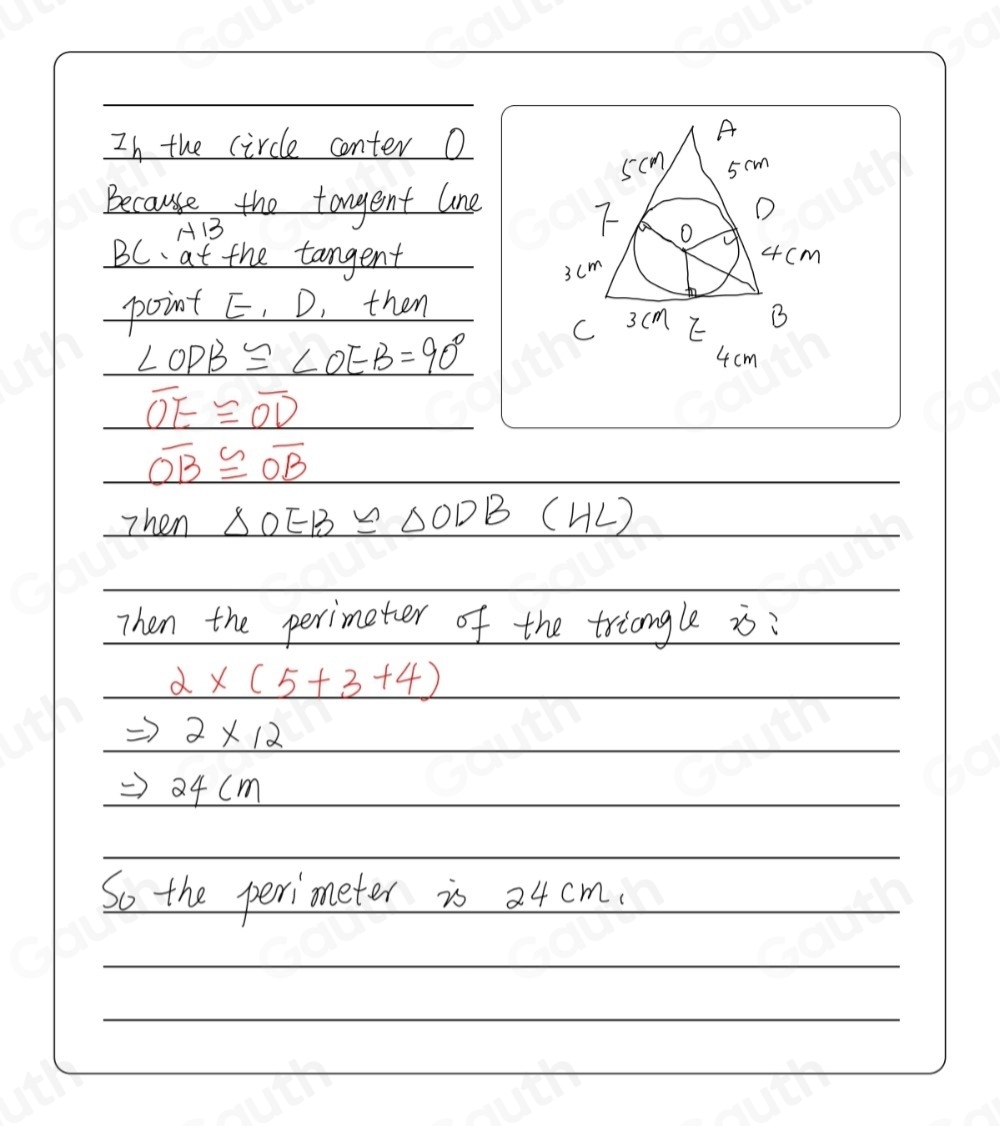 In the circle center O
Because the tangent line
AB
BC、at the tangent
point E, D, then
∠ODB ≅ ∠OEB = 90°
OE ≅ OD
OB ≅ OB
Then △OEB ≅ △ODB (HL)
Then the perimeter of the triangle is:
2 × (5+3+4)
=> 2 × 12
=> 24 cm
So the perimeter is 24 cm.
A
5cm
5cm
F
O
D
3cm
4cm
C
3cm
E
B
4cm
Gauth